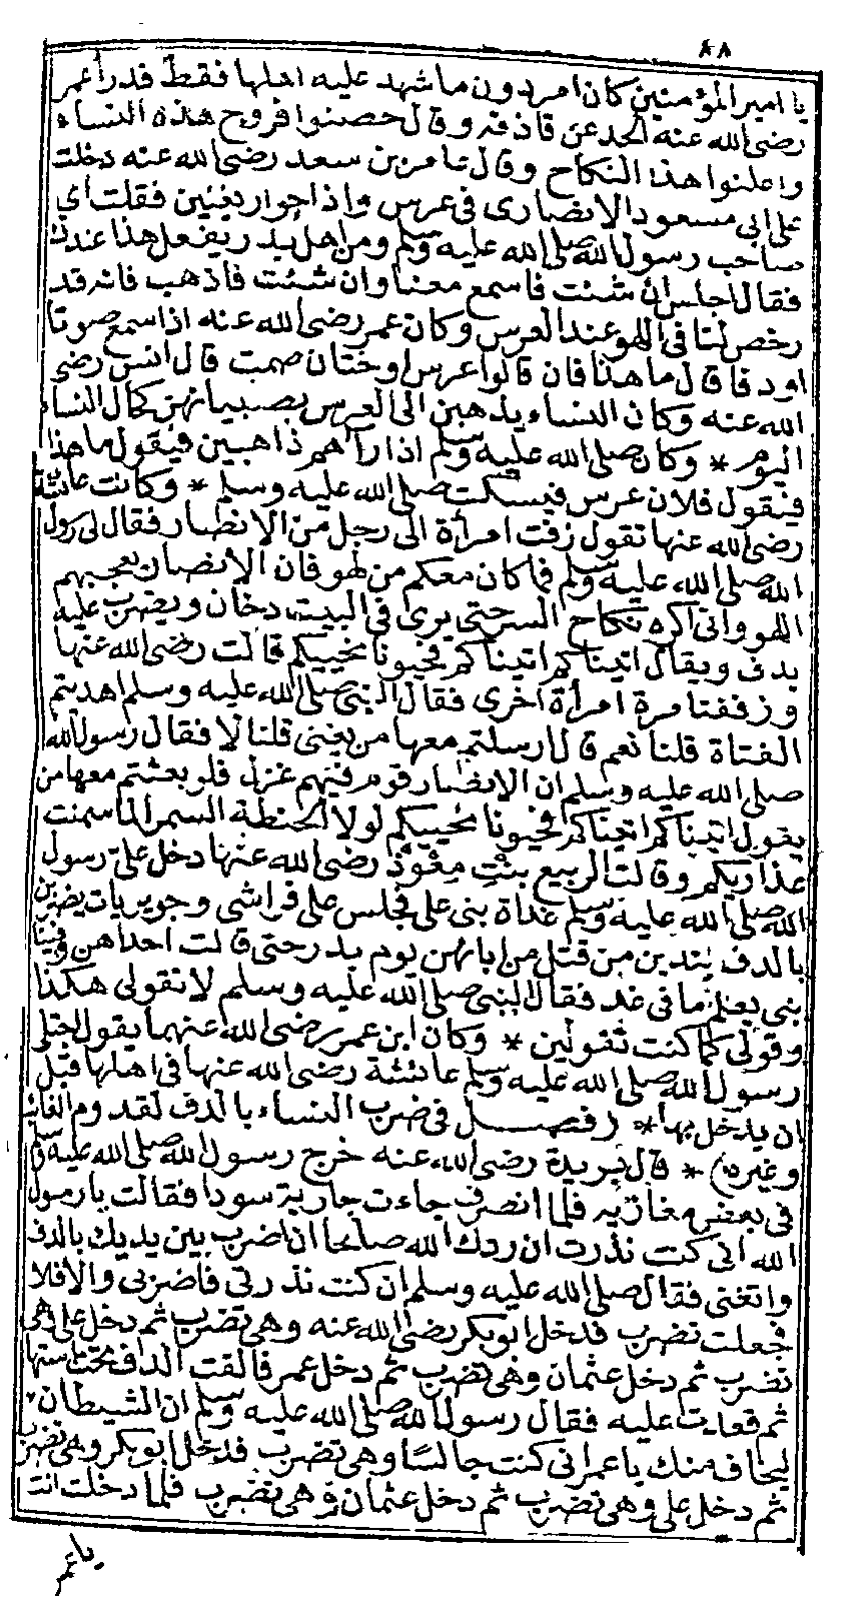 ٨٨
يا امير المؤمنين كان امر دون ما شهد عليه اهلها فقط فدرأ عمر
رضى الله عنه الحد عن قاذفه وقال حصنوا فروج هذه النساء
واعلنوا هذا النكاح وقال عامر بن سعد رضى الله عنه دخلت
على ابى مسعود الانصارى فى عرس واذا جوار يغنين فقلت اى
صاحب رسول الله صلى الله عليه وسلم ومن اهل بدر يفعل هذا عندك
فقال اجلس ان شئت فاسمع معنا وان شئت فاذهب فانه قد
رخص لنا فى اللهو عند العرس وكان عمر رضى الله عنه اذا سمع صوتا
او دفا قال ما هذا فان قالوا عرس او ختان صمت قال انس رضى
الله عنه وكان النساء يذهبن الى العرس بصبيانهن كمال النساء
اليوم * وكان صلى الله عليه وسلم اذا رآهم ذاهبين فيقول ما هذا
فيقول فلان عرس فيسكت صلى الله عليه وسلم * وكانت عائشة
رضى الله عنها تقول زفت امرأة الى رجل من الانصار فقال لى رسول
الله صلى الله عليه وسلم فما كان معكم من لهو فان الانصار يعجبهم
اللهو وانى اكره نكاح السر حتى يرى فى البيت دخان ويضرب عليه
بدف ويقال اتيناكم اتيناكم فحيونا نحييكم قالت رضى الله عنها
وزففنا مرة امرأة اخرى فقال النبى صلى الله عليه وسلم اهديتم
الفتاة قلنا نعم قال ارسلتم معها من يغنى قلنا لا فقال رسول الله
صلى الله عليه وسلم ان الانصار قوم فيهم غزل فلو بعثتم معها من
يقول اتيناكم اتيناكم فحيونا نحييكم لولا الحنطة السمرا لما سمنت
عذاريكم وقالت الربيع بنت معوذ رضى الله عنها دخل على رسول
الله صلى الله عليه وسلم غداة بنى على فجلس على فراشى وجويريات يضربن
بالدف يندبن من قتل من ابائهن يوم بدر حتى قالت احداهن وفينا
نبى يعلم ما فى غد فقال النبى صلى الله عليه وسلم لا تقولى هكذا
وقولى كما كنت تقولين * وكان ابن عمر رضى الله عنهما يقول
رسول الله صلى الله عليه وسلم عائشة رضى الله عنها فى اهلها قبل
ان يدخل بها * (فصل فى ضرب النساء بالدف لقدوم الغائب
وغيره) * قال بريدة رضى الله عنه خرج رسول الله صلى الله عليه وسلم
فى بعض مغازيه فلما انصرف جاءت جارية سودا فقالت يا رسول
الله انى كنت نذرت ان ردك الله صالحا ان اضرب بين يديك بالدف
واتغنى فقال صلى الله عليه وسلم ان كنت نذرتى فاضربى والا فلا
فجعلت تضرب فدخل ابو بكر رضى الله عنه وهى تضرب ثم دخل على وهى
تضرب ثم دخل عثمان وهى تضرب ثم دخل عمر فالقت الدف تحت استها
ثم قعدت عليه فقال رسول الله صلى الله عليه وسلم ان الشيطان
ليخاف منك يا عمر انى كنت جالسا وهى تضرب فدخل ابو بكر وهى تضرب
ثم دخل على وهى تضرب ثم دخل عثمان وهى تضرب فلما دخلت انت
يا عمر